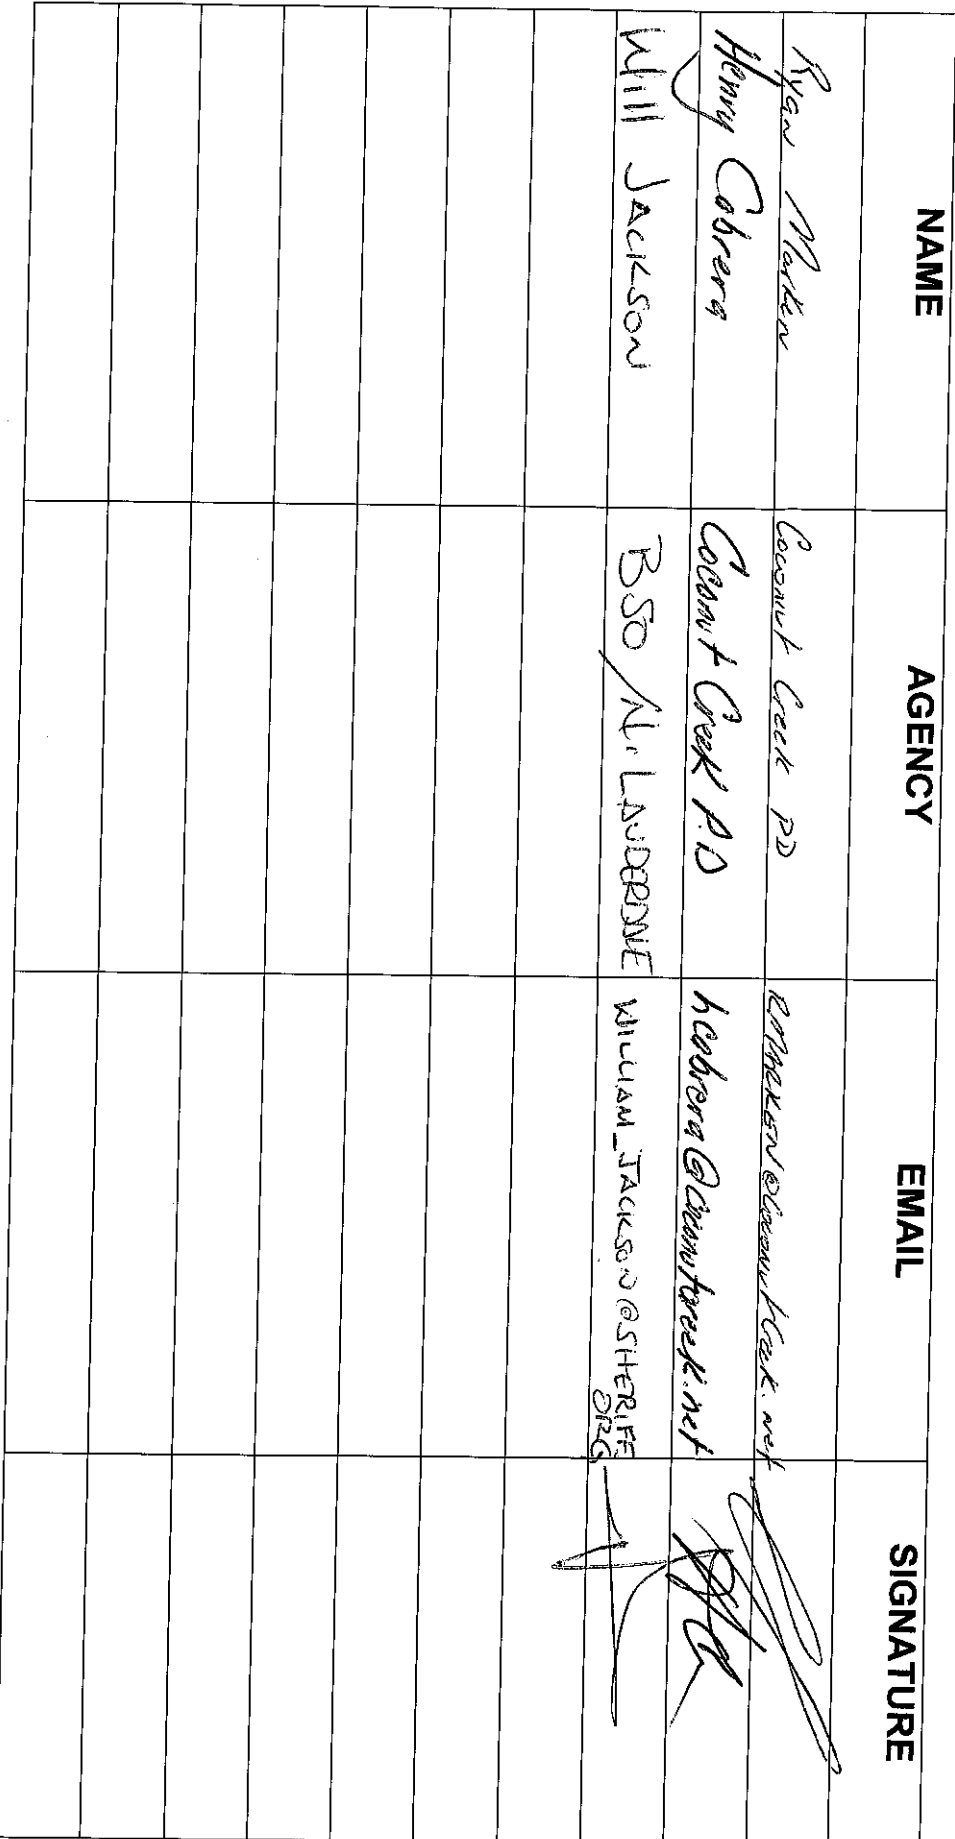 NAME AGENCY EMAIL SIGNATURE
Ryan Marken Coconut Creek PD RMARKEN@CoconutCreek.net
Henry Cabrera Coconut Creek P.D hcabrera@coconutcreek.net
Will JACKSON BSO/N. LAUDERDALE WILLIAM_JACKSON@SHERIFF
ORG